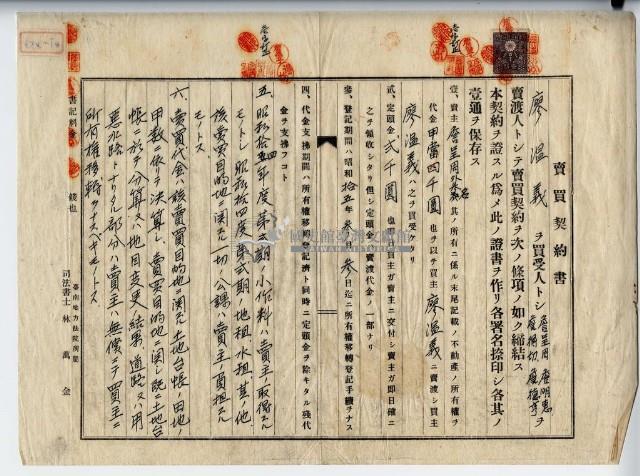 賣買契約書
廖溫義ヲ買受人トシ詹呈周 詹明惠 詹樹切 詹德亨ヲ
賣渡人トシテ賣買契約ヲ次ノ條項ノ如ク締結ス
本契約ヲ證スル爲メ此ノ證書ヲ作リ各署名捺印シ各其ノ
壹通ヲ保存ス
壹、賣主詹呈周外參名其ノ所有ニ係ル末尾記載ノ不動產ノ所有權ヲ
代金甲當四千圓也ヲ以テ買主廖溫義ニ賣渡シ買主
廖溫義ハ之ヲ買受ケタリ
貳、定頭金弐千圓也ヲ買主ガ賣主ニ交付シ賣主ガ即日確ニ
之ヲ領收シタリ但シ定頭金ハ賣渡代金ノ一部ナリ
參、登記期間ハ昭和拾五年參月參日迄ニ所有權移轉登記手續ヲナス
四、代金支拂期間ハ所有權移轉登記濟ト同時ニ定頭金ヲ除キタル殘代
金ヲ支拂フコト
五、昭和拾四年度第弐期ノ小作料ハ賣主ノ取得スルモノ
トシ昭和拾四年度第弐期ノ地租水租其ノ他
該賣買目的地ニ関スル一切ノ公課ハ賣主ノ負担スル
モノトス
六、賣買代金ハ該賣買目的地ニ関スル土地台帳ノ田地ノ
甲数ニ依リテ決算シ賣買目的地ニ関シ既ニ土地台
帳ニ於テ分筆又ハ地目変更ノ結果道路又ハ用
悪水路トナリタル部分ハ賣主ハ無償ニテ買主ニ
所有權移轉ヲナスベキモノトス
書記料金 錢也
臺南地方法院所屬
司法書士 林萬金
國立臺灣文獻館
TAIWAN HISTORICA